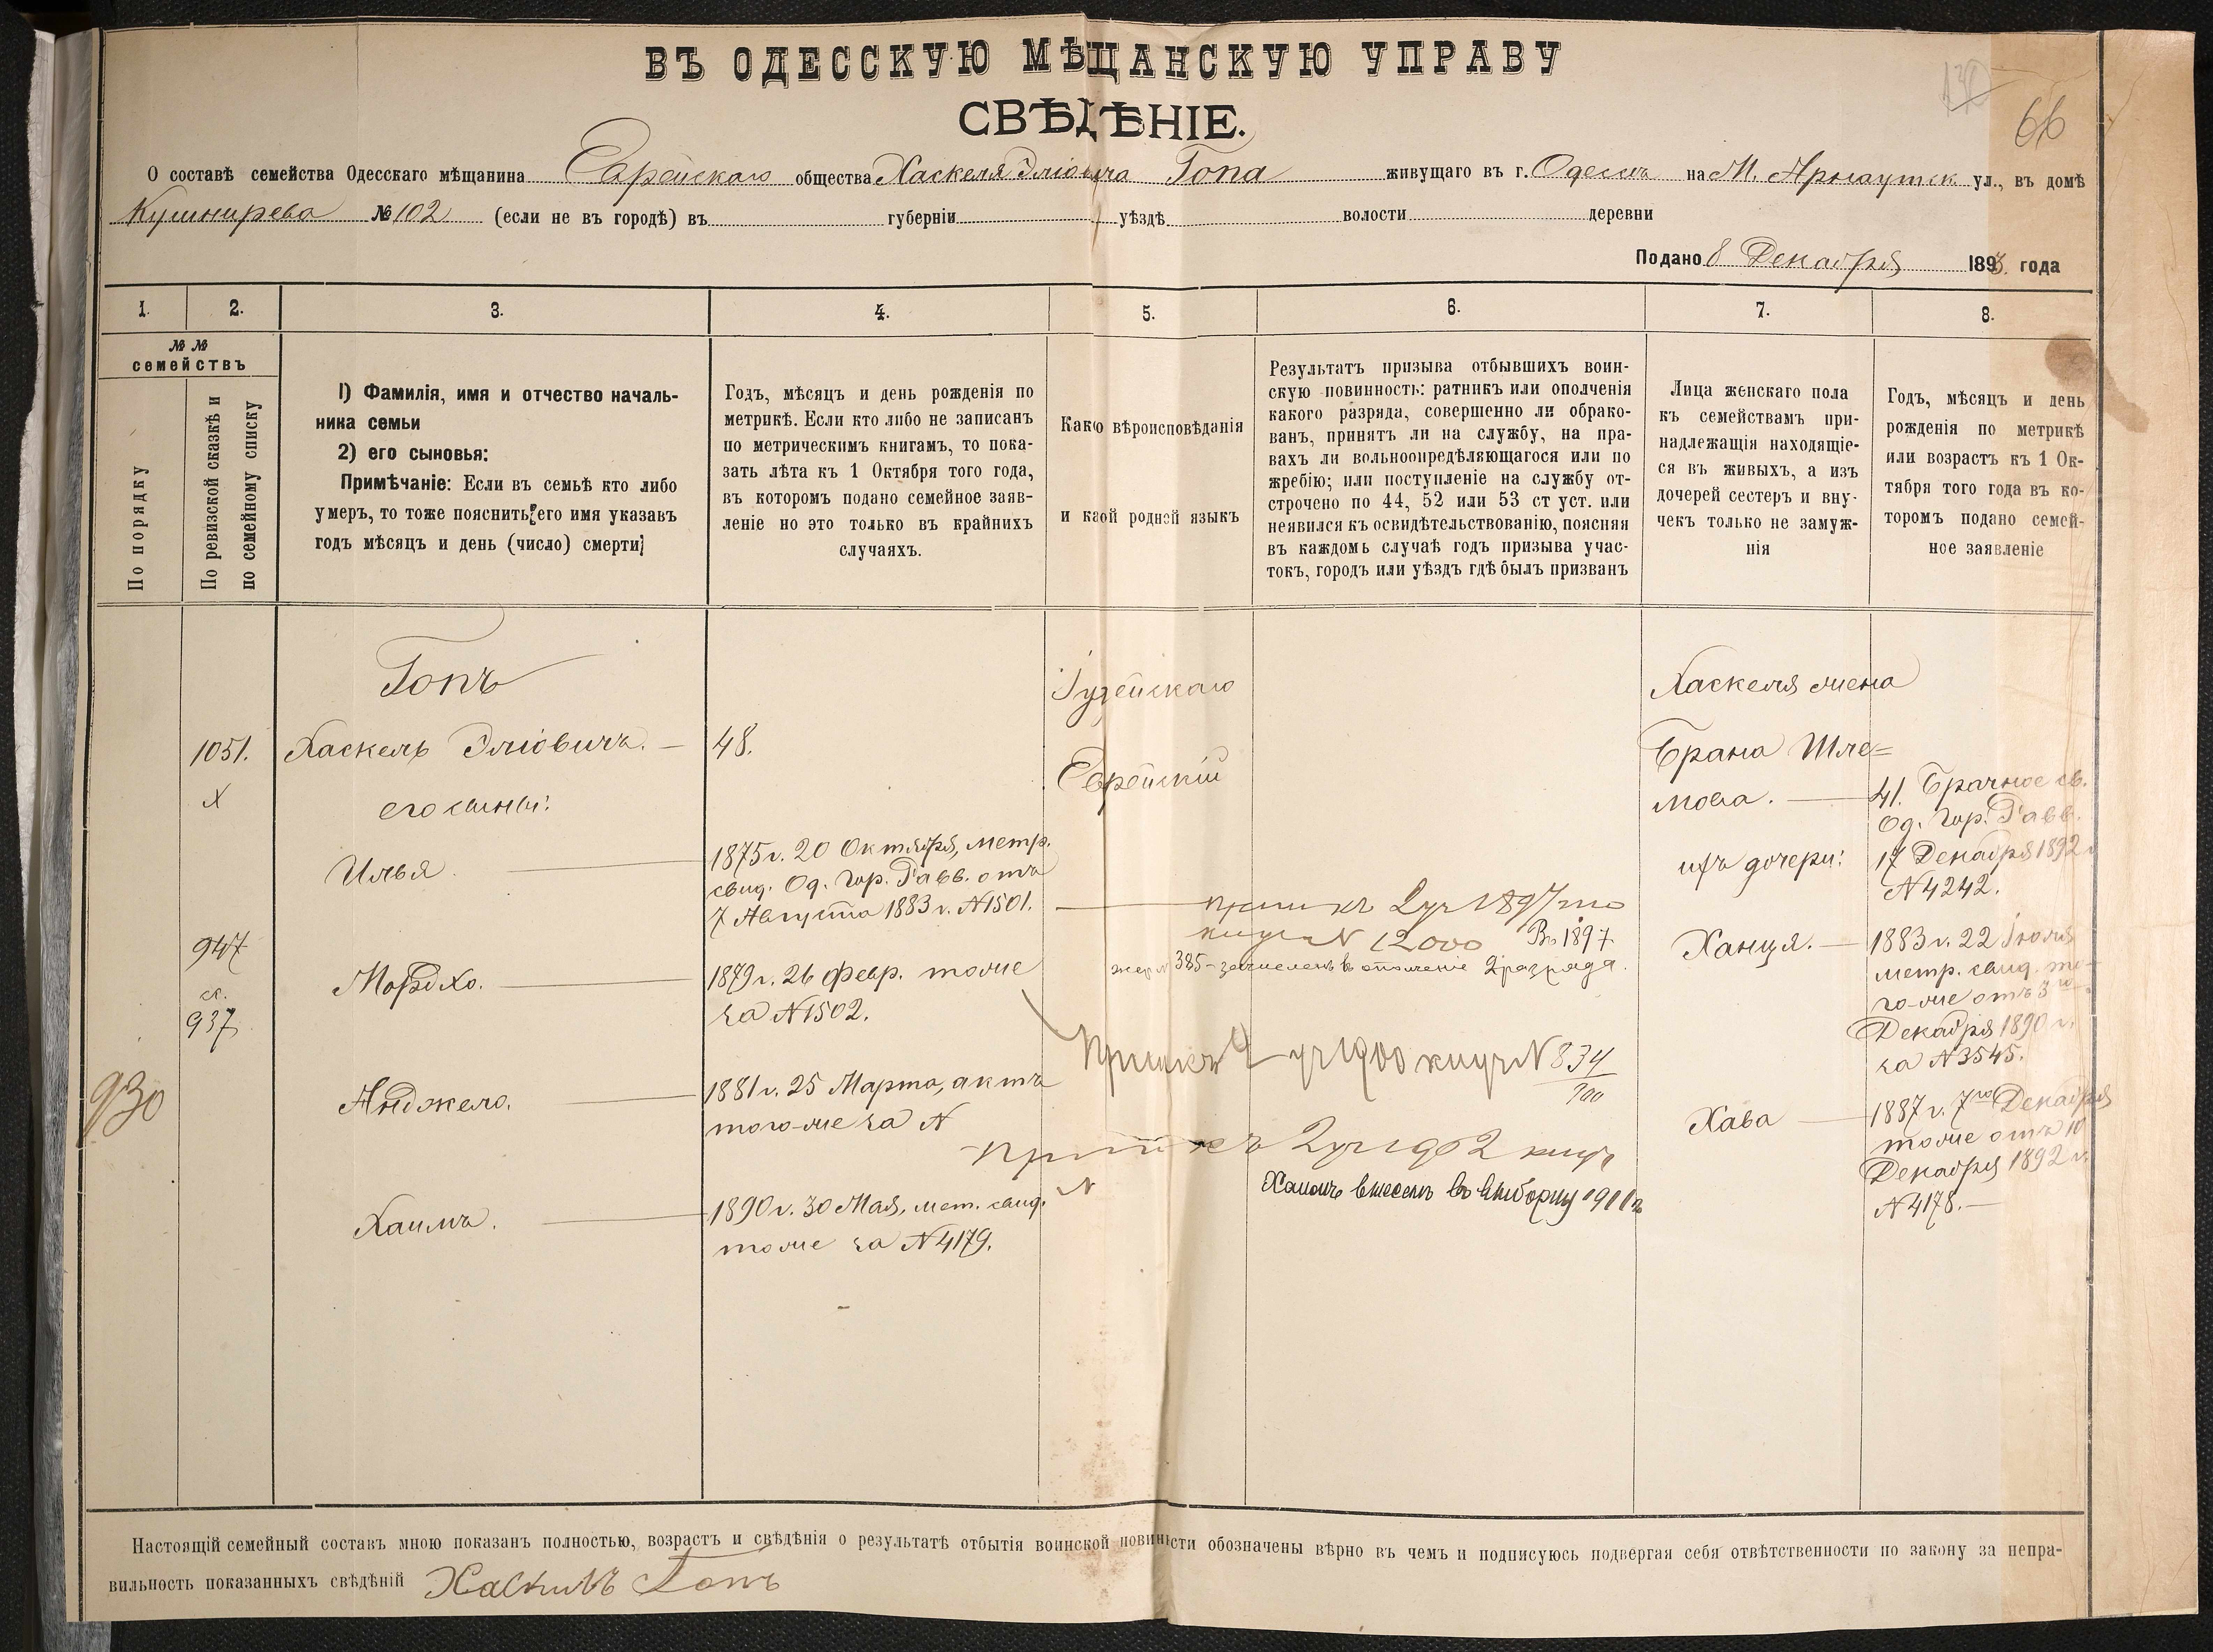 ВЪ ОДЕССКУЮ МѢЩАНСКУЮ УПРАВУ
СВѢДѢНІЕ.
66
О составѣ семейства Одесскаго мѣщанина Еврейскаго общества Хаскеля Эліовича Гопа живущаго въ г. Одессѣ на М. Арнаутск. ул., въ домѣ
Кушнирева № 102 (если не въ городѣ) въ губерніи уѣздѣ волости деревни
Подано 8 Декабря 1893. года
1. 2. 3. 4. 5. 6. 7. 8.
№ №
семействъ
По порядку
По ревизской сказкѣ и
по семейному списку
1) Фамилія, имя и отчество началь-
ника семьи
2) его сыновья:
Примѣчаніе: Если въ семьѣ кто либо
умеръ, то тоже пояснить его имя указавъ
годъ мѣсяцъ и день (число) смерти
Годъ, мѣсяцъ и день рожденія по
метрикѣ. Если кто либо не записанъ
по метрическимъ книгамъ, то пока-
зать лѣта къ 1 Октября того года,
въ которомъ подано семейное заяв-
леніе но это только въ крайнихъ
случаяхъ.
Како вѣроисповѣданія
и каой родной языкъ
Результатъ призыва отбывшихъ воин-
скую повинность: ратникъ или ополченія
какого разряда, совершенно ли обрако-
ванъ, принятъ ли на службу, на пра-
вахъ ли вольноопредѣляющагося или по
жребію; или поступленіе на службу от-
строчено по 44, 52 или 53 ст уст. или
неявился къ освидѣтельствованію, поясняя
въ каждомъ случаѣ годъ призыва учас-
токъ, городъ или уѣздъ гдѣ былъ призванъ
Лица женскаго пола
къ семействамъ при-
надлежащія находящіе-
ся въ живыхъ, а изъ
дочерей сестеръ и вну-
чекъ только не замуж-
нія
Годъ, мѣсяцъ и день
рожденія по метрикѣ
или возрастъ къ 1 Ок-
тября того года въ ко-
торомъ подано семей-
ное заявленіе
Гопъ
1051. Хаскель Эліовичъ. — 48.
х
его сыны:
Илья
1875 г. 20 Октября, метр.
свид. Од. Гор. Равв. отъ
7 Августа 1883 г. N 1501.
947
ск.
937
Мордхо.
1879 г. 26 Февр. тоже
за N 1502.
930
Анджело.
1881 г. 25 Марта, актъ
того-же за N
Хаимъ.
1890 г. 30 Мая, мет. свид.
тоже за N 4179.
Іудейскаго
Еврейскій
1897
N 12000 Въ 1897
385 - зачисленъ въ ополченіе 2 разряда.
2 уч 1900 N 834
700
2 уч 1902
N
внесенъ въ 1911 г
Хаскеля жена
Брана Шле=
мова. — 41. Брачное св.
Од. Гор. Равв.
17 Декабря 1892 г.
N 4242.
ихъ дочери:
Ханця. — 1883 г. 22 Іюля
метр. свид. то-
го-же отъ 3го
Декабря 1890 г.
за N 3545.
Хава — 1887 г. 7го Декабря
тоже отъ 10
Декабря 1892 г.
N 4178. —
Настоящій семейный составъ мною показанъ полностью, возрастъ и свѣдѣнія о результатѣ отбытія воинской повинности обозначены вѣрно въ чемъ и подписуюсь подвергая себя отвѣтственности по закону за непра-
вильность показанныхъ свѣдѣній Хаскилъ Гопъ